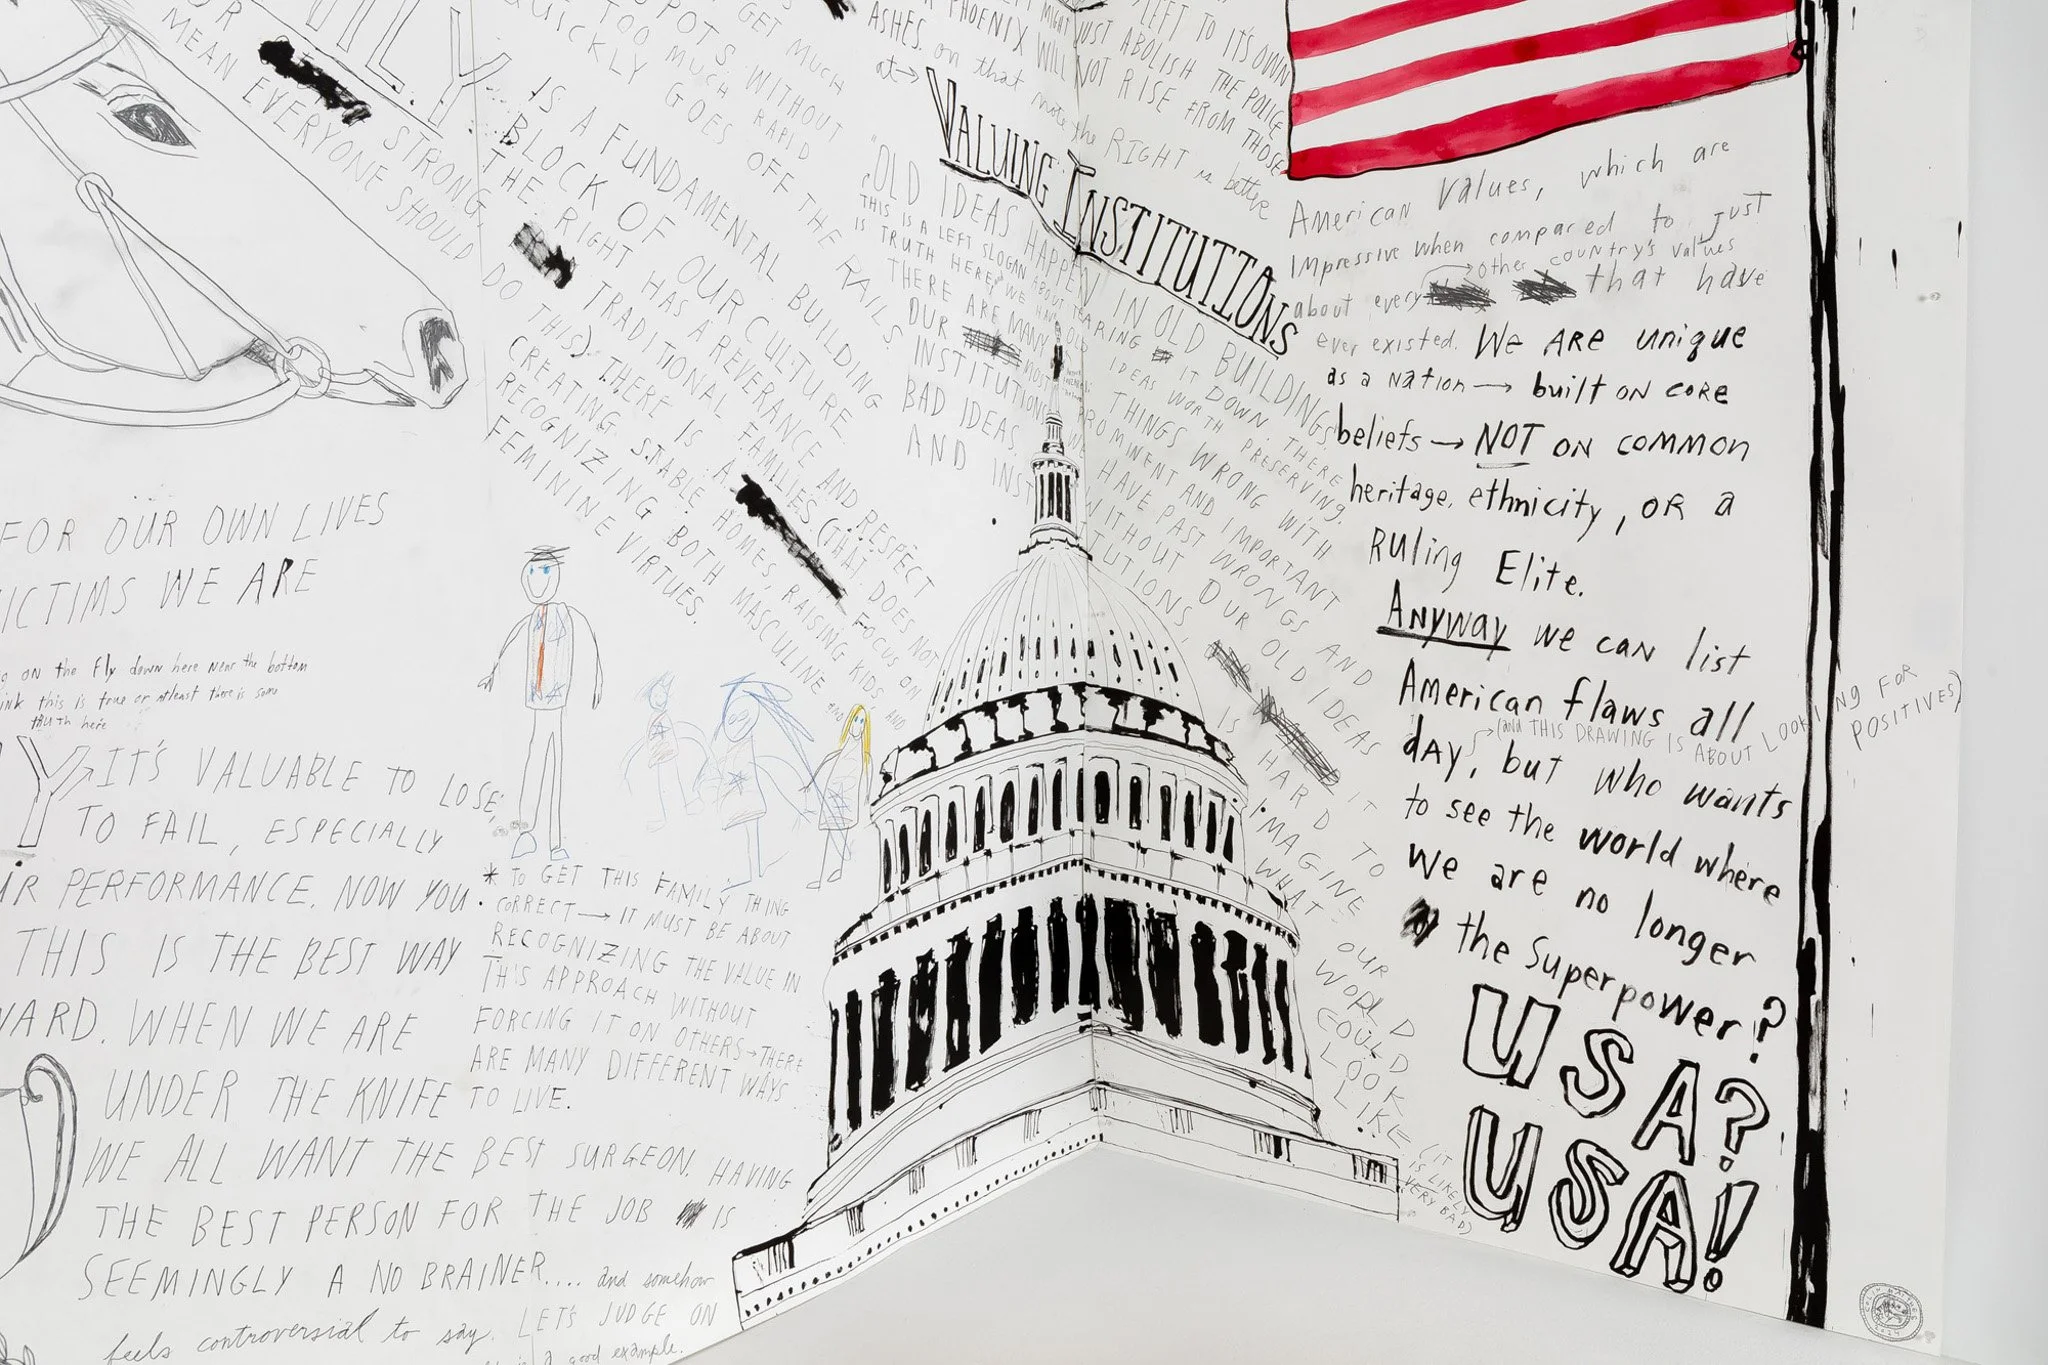 OUR
MEAN EVERYONE SHOULD DO THIS).
STRONG,
ILY
IS A FUNDAMENTAL BUILDING
BLOCK OF OUR CULTURE
THE RIGHT HAS A REVERANCE AND RESPECT
TRADITIONAL FAMILIES (THAT DOES NOT
THERE IS A FOCUS ON
CREATING STABLE HOMES, RAISING KIDS, AND
RECOGNIZING BOTH MASCULINE AND
FEMININE VIRTUES.
SPOTS WITHOUT
TOO MUCH RAPID
QUICKLY GOES OFF THE RAILS.
GET MUCH
ASHES. on that note the RIGHT is better
at →
VALUING INSTITUTIONS
PHOENIX WILL NOT RISE FROM THOSE
MIGHT JUST ABOLISH THE POLICE
LEFT TO IT'S OWN
"OLD IDEAS HAPPEN IN OLD BUILDINGS
THIS IS A LEFT SLOGAN ABOUT TEARING IT DOWN THERE
IS TRUTH HERE, WE HAVE OLD IDEAS WORTH PRESERVING.
THERE ARE MANY THINGS WRONG WITH
OUR MOST PROMINENT AND IMPORTANT
INSTITUTIONS WE HAVE PAST WRONGS AND
BAD IDEAS. WITHOUT OUR OLD IDEAS
AND INSTITUTIONS, IT
IS HARD TO
IMAGINE
WHAT OUR
WORLD
COULD
LOOK
LIKE (IT
IS LIKELY
VERY BAD)
FOR OUR OWN LIVES
VICTIMS WE ARE
on the fly down here near the bottom
think this is true or atleast there is some
truth here
Y → IT'S VALUABLE TO LOSE,
TO FAIL, ESPECIALLY
PERFORMANCE. NOW YOU
THIS IS THE BEST WAY
WARD. WHEN WE ARE
UNDER THE KNIFE
WE ALL WANT THE BEST SURGEON. HAVING
THE BEST PERSON FOR THE JOB IS
SEEMINGLY A NO BRAINER.... and somehow
feels controversial to say. LET'S JUDGE ON
a good example.
* TO GET THIS FAMILY THING
CORRECT → IT MUST BE ABOUT
RECOGNIZING THE VALUE IN
THIS APPROACH WITHOUT
FORCING IT ON OTHERS → THERE
ARE MANY DIFFERENT WAYS
TO LIVE.
American values, which are
impressive when compared to just
about every → other country's values
that have
ever existed. We are unique
as a nation → built on core
beliefs → NOT on common
heritage, ethnicity, or a
Ruling Elite.
Anyway we can list
American flaws all
day, (and THIS DRAWING IS ABOUT LOOKING FOR POSITIVES)
but who wants
to see the world where
we are no longer
the superpower?
USA?
USA!
2024